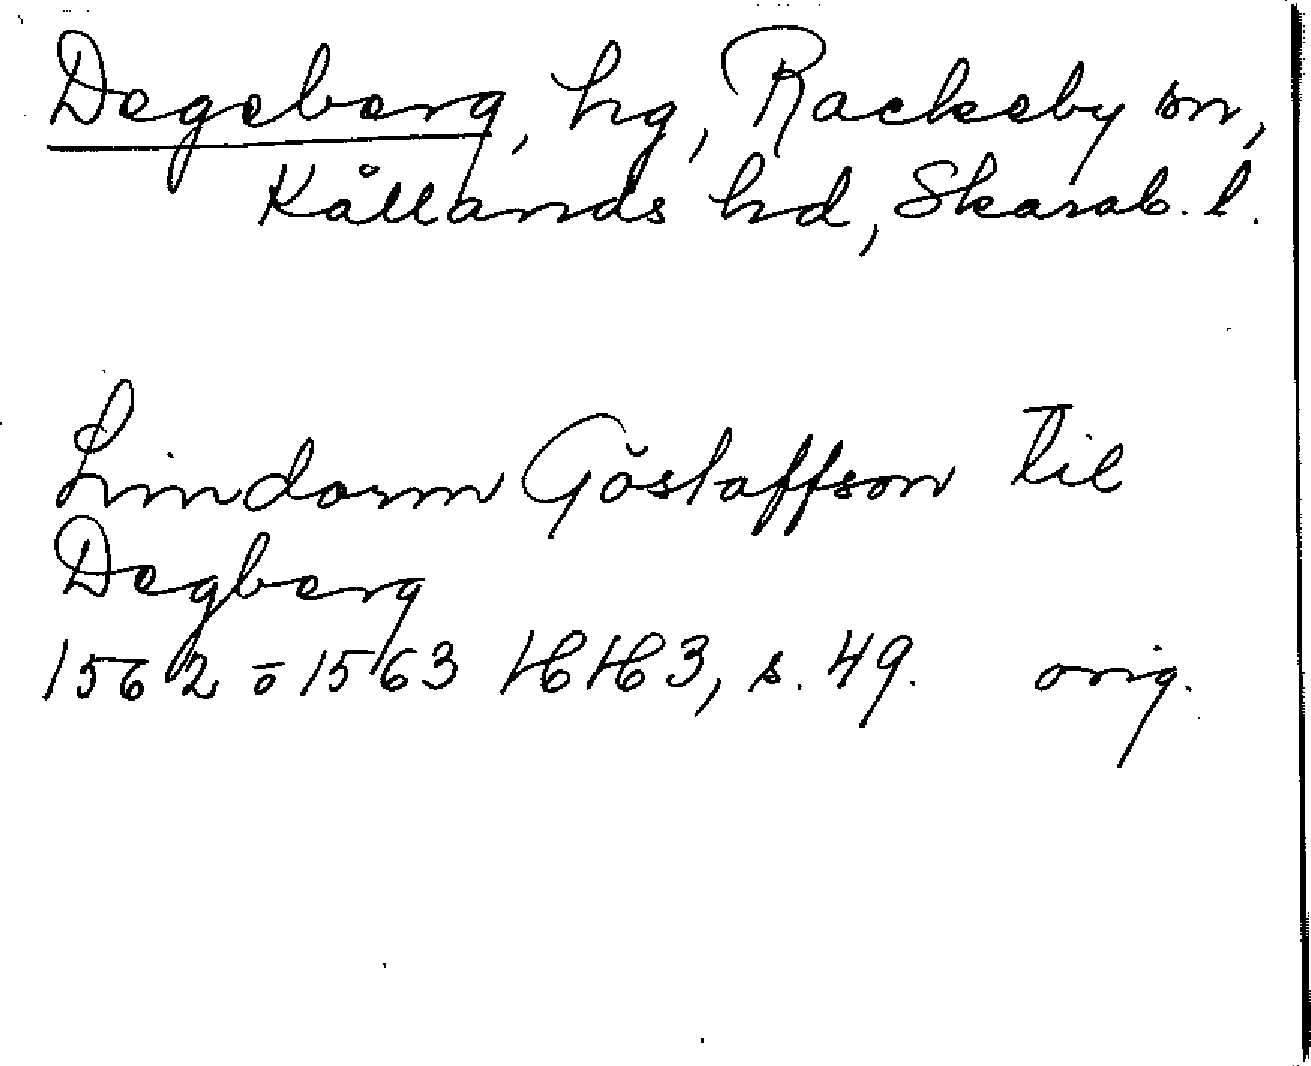 Degeberg, hg, Rackeby sn,
Kållands hd, Skarab. l.
Lindorm Göstaffson till
Degberg
1562 ō 1563 HH 3, s. 49. orig.